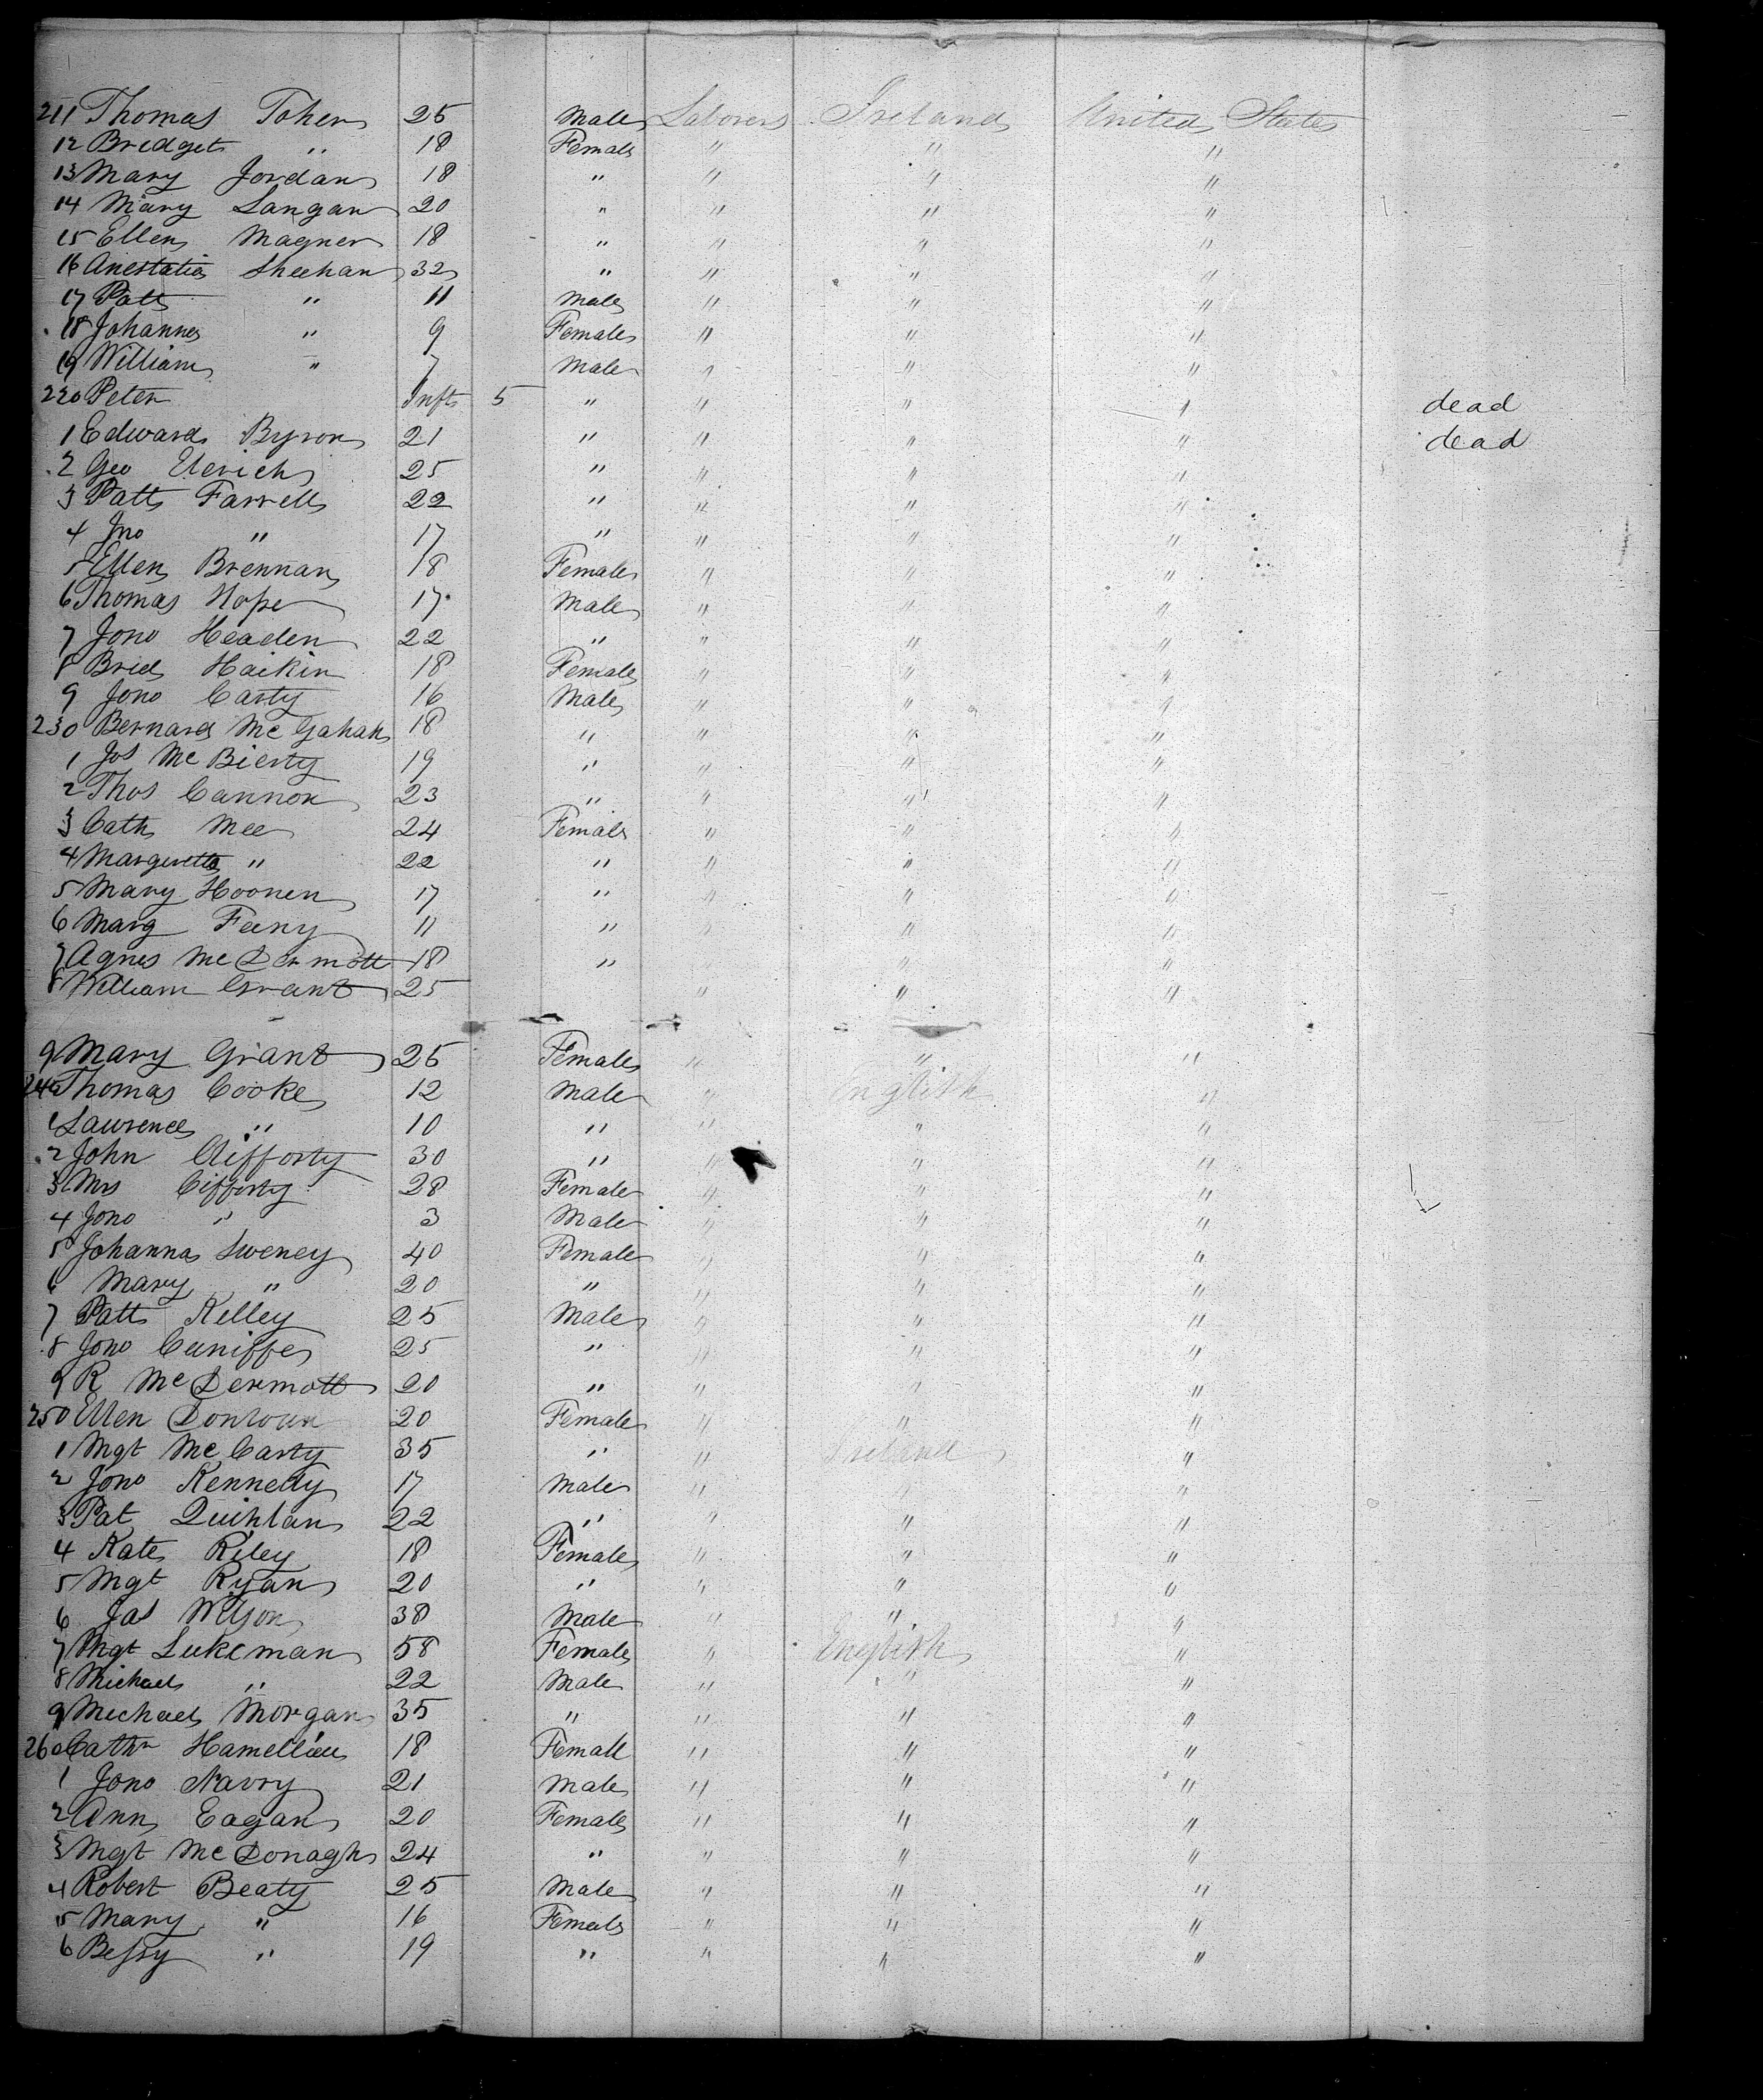 211 Thomas Tohen 25 Male Laborers Ireland United States
12 Bridget " 18 Female " " "
13 Mary Jordan 18 " " " "
14 Mary Langan 20 " " " "
15 Ellen Magner 18 " " " "
16 Anestatia Sheehan 32 " " " "
17 Patt " 11 Male " " "
18 Johanna " 9 Female " " "
19 William " 7 Male " " "
220 Peter Inft 5 " " " " dead
1 Edward Byron 21 " " " " dead
2 Geo 25 " " " "
3 Patt Farrell 22 " " " "
4 Jno " 17 " " " "
5 Ellen Brennan 18 Female " " "
6 Thomas Hope 17 Male " " "
7 Jono Headen 22 " " " "
8 Brid Haikin 18 Female " " "
9 Jono Carty 16 Male " " "
230 Bernard McGahah 18 " " " "
1 Jos McBierty 19 " " " "
2 Thos Cannon 23 " " " "
3 Cath Mee 24 Female " " "
4 Margeretta " 22 " " " "
5 Mary Hoonen 17 " " " "
6 Marg Feeny 11 " " " "
7 Agnes McDermott 18 " " " "
8 William Grant 25 " " "
9 Mary Grant 25 Female " " "
240 Thomas Cooke 12 Male " English "
1 Lawrence " 10 " " " "
2 John Clifforty 30 " " " "
3 Mrs Cifforty 28 Female " " "
4 Jono " 3 Male " " "
5 Johanna Sweney 40 Female " " "
6 Mary " 20 " " " "
7 Patt Kelley 25 Male " " "
8 Jono Cuniffe 25 " " " "
9 R McDermott 20 " " " "
250 Ellen 20 Female " " "
1 Mgt McCarty 35 " " Ireland "
2 Jono Kennedy 17 Male " " "
3 Pat Quihlan 22 " " " "
4 Kate Riley 18 Female " " "
5 Mgt Ryan 20 " " " "
6 Jas Wilson 38 Male " " "
7 Mgt Lukeman 58 Female " English "
8 Michael " 22 Male " " "
9 Michael Morgan 35 " " " "
260 Cathn 18 Female " " "
1 Jono Navry 21 Male " " "
2 Ann Eagan 20 Female " " "
3 Mgt McDonagh 24 " " " "
4 Robert Beaty 25 Male " " "
5 Mary " 16 Female " " "
6 Bessy " 19 " " " "